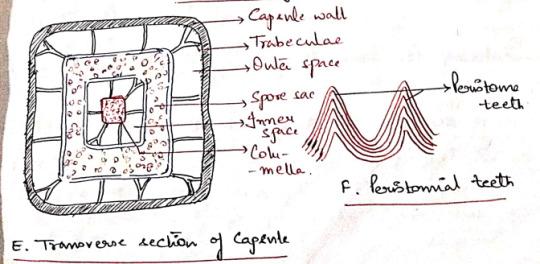 Capsule wall
Trabeculae
Outer space
Spore sac
Inner
space
Colu-
-mella.
Peristome
teeth
F. Peristomial teeth
E. Transverse section of Capsule